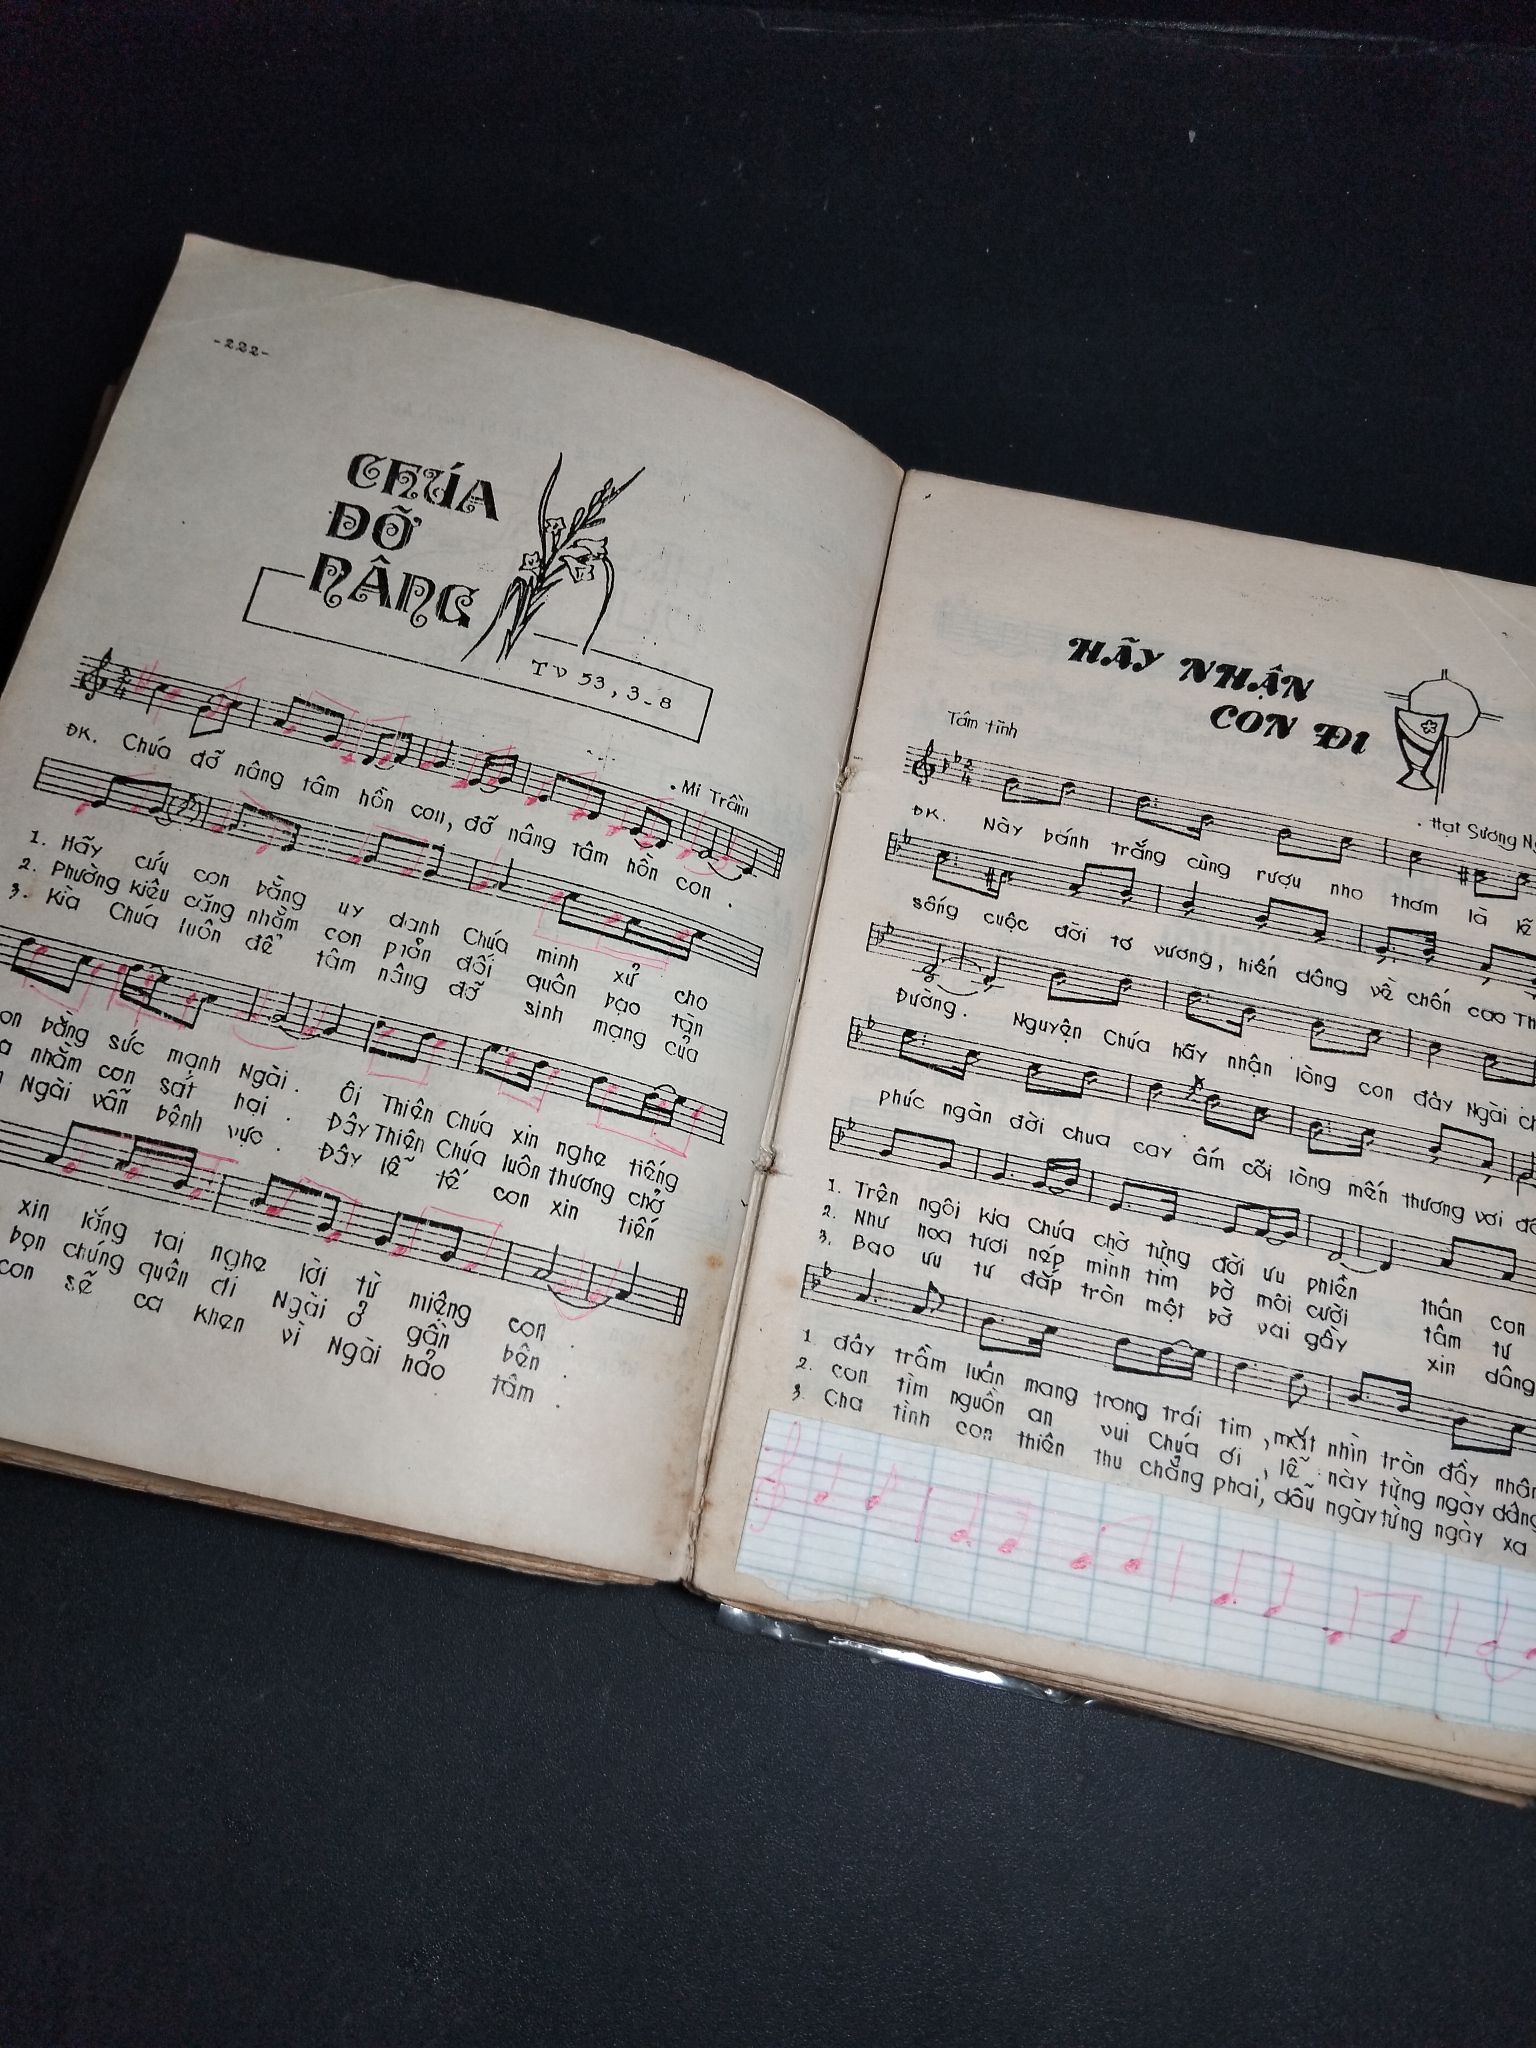 -222-
CHÚA
ĐỠ
NÂNG
TV 53, 3_8
. Mi Trầm
ĐK. Chúa đỡ nâng tâm hồn con, đỡ nâng tâm hồn con .
1. Hãy cứu con bằng uy danh Chúa minh xử cho
2. Phường kiêu căng nhằm con phản đối quân bạo tàn
3. Kìa Chúa luôn để tâm nâng đỡ sinh mạng của
bằng sức mạnh Ngài . Ôi Thiên Chúa xin nghe tiếng
nhằm con sát hại . Đây Thiên Chúa luôn thương chở
Ngài vẫn bênh vực . Đây lễ tế con xin tiến
xin lắng tai nghe lời từ miệng con .
bọn chúng quên đi Ngài ở gần bên .
con sẽ ca khen vì Ngài hảo tâm .
HÃY NHẬN
CON ĐI
Tâm tình
. Hạt Sương
ĐK. Này bánh trắng cùng rượu nho thơm là lễ
sống cuộc đời tơ vương, hiến dâng về chốn cao
Đường . Nguyện Chúa hãy nhận lòng con đây Ngài
phúc ngàn đời chua cay ấm cõi lòng mến thương vơi
1. Trên ngôi kia Chúa chờ từng đời ưu phiền thân con
2. Như hoa tươi nép mình tìm bờ môi cười tâm tư
3. Bao ưu tư đắp tròn một bờ vai gầy xin dâng
1. đây trầm luân mang trong trái tim , mắt nhìn tràn đầy
2. con tìm nguồn an vui Chúa ơi , lễ này từng ngày dâng
3. Cha tình con thiên thu chẳng phai, dẫu ngày từng ngày xa